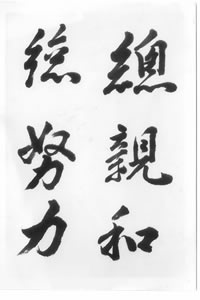 總親和
総努力